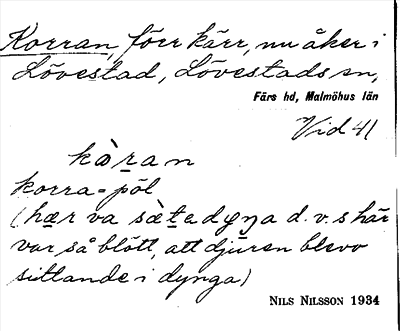 Korran, förr kärr, nu åker i
Lövestad, Lövestads sn,
Färs hd, Malmöhus län
Vid 41
kàran
korra-pöl
(hær va sæ̀ta dyŋa d.v.s här
var så blött, att djuren blevo
sittande i dynga)
NILS NILSSON 1934